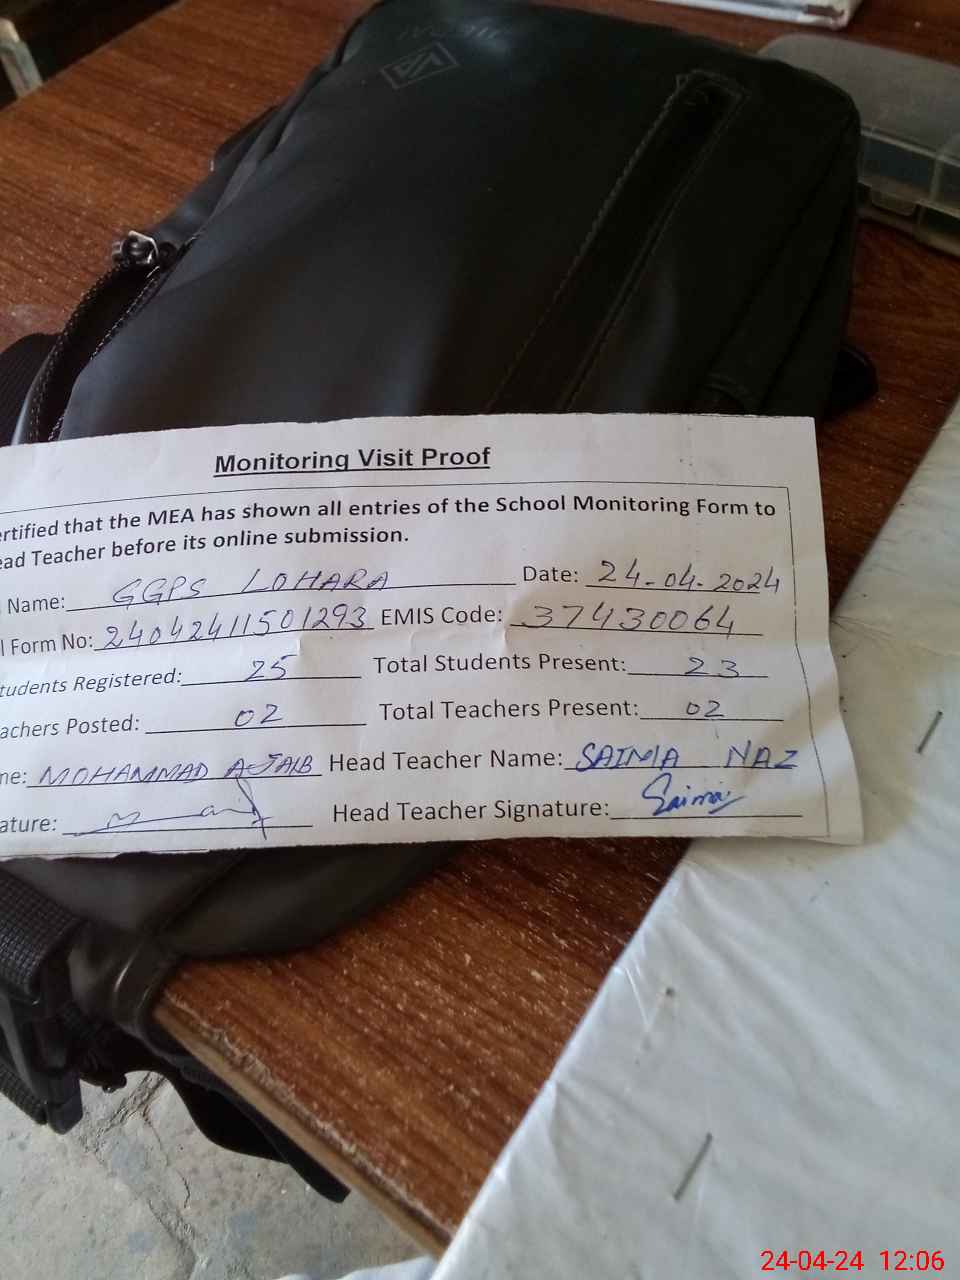 Monitoring Visit Proof
ertified that the MEA has shown all entries of the School Monitoring Form to
ead Teacher before its online submission.
Name: GGPS LOHARA Date: 24-04-2024
l Form No: 24042411501293 EMIS Code: 37430064
tudents Registered: 25 Total Students Present: 23
achers Posted: 02 Total Teachers Present: 02
me: MOHAMMAD AJAIB Head Teacher Name: SAIMA NAZ
ature: Head Teacher Signature: Saima
24-04-24 12:06